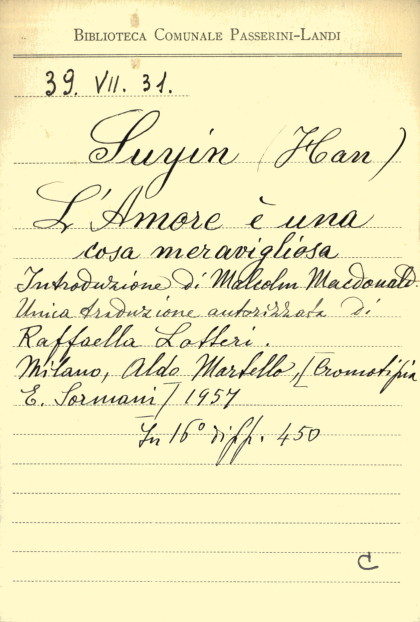 BIBLIOTECA COMUNALE PASSERINI-LANDI
39. VII. 31.
Suyin (Han)
L'Amore è una
cosa meravigliosa
Introduzione di Malcolm Macdonald.
Unica traduzione autorizzata di
Raffaella Lotteri.
Milano, Aldo Martello, [Cromotipia
E. Sormani] 1957
In 16° di pp. 450
C